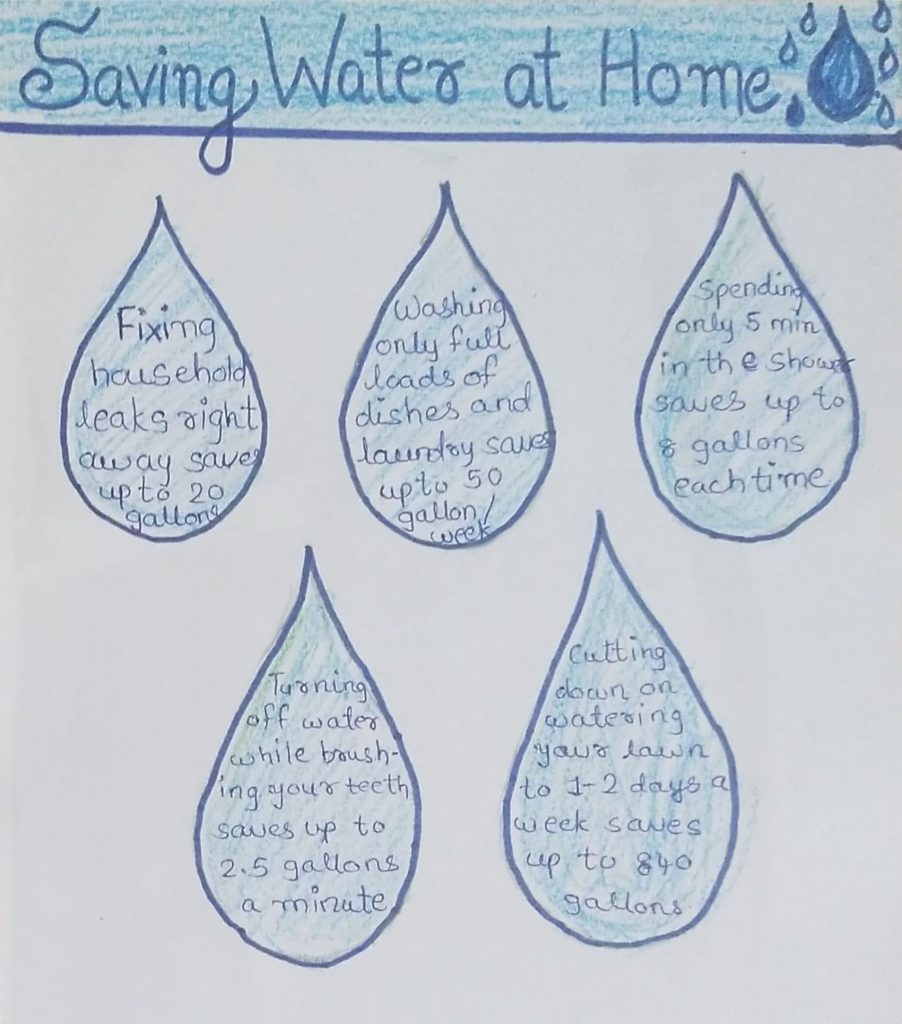 Saving Water at Home
Fixing
household
leaks right
away saves
upto 20
gallons
Washing
only full
loads of
dishes and
laundry saves
upto 50
gallon/
week
Spending
only 5 min
in the shower
saves up to
8 gallons
each time
Turning
off water
while brush-
ing your teeth
saves up to
2.5 gallons
a minute
Cutting
down on
watering
your lawn
to 1-2 days a
week saves
up to 840
gallons.